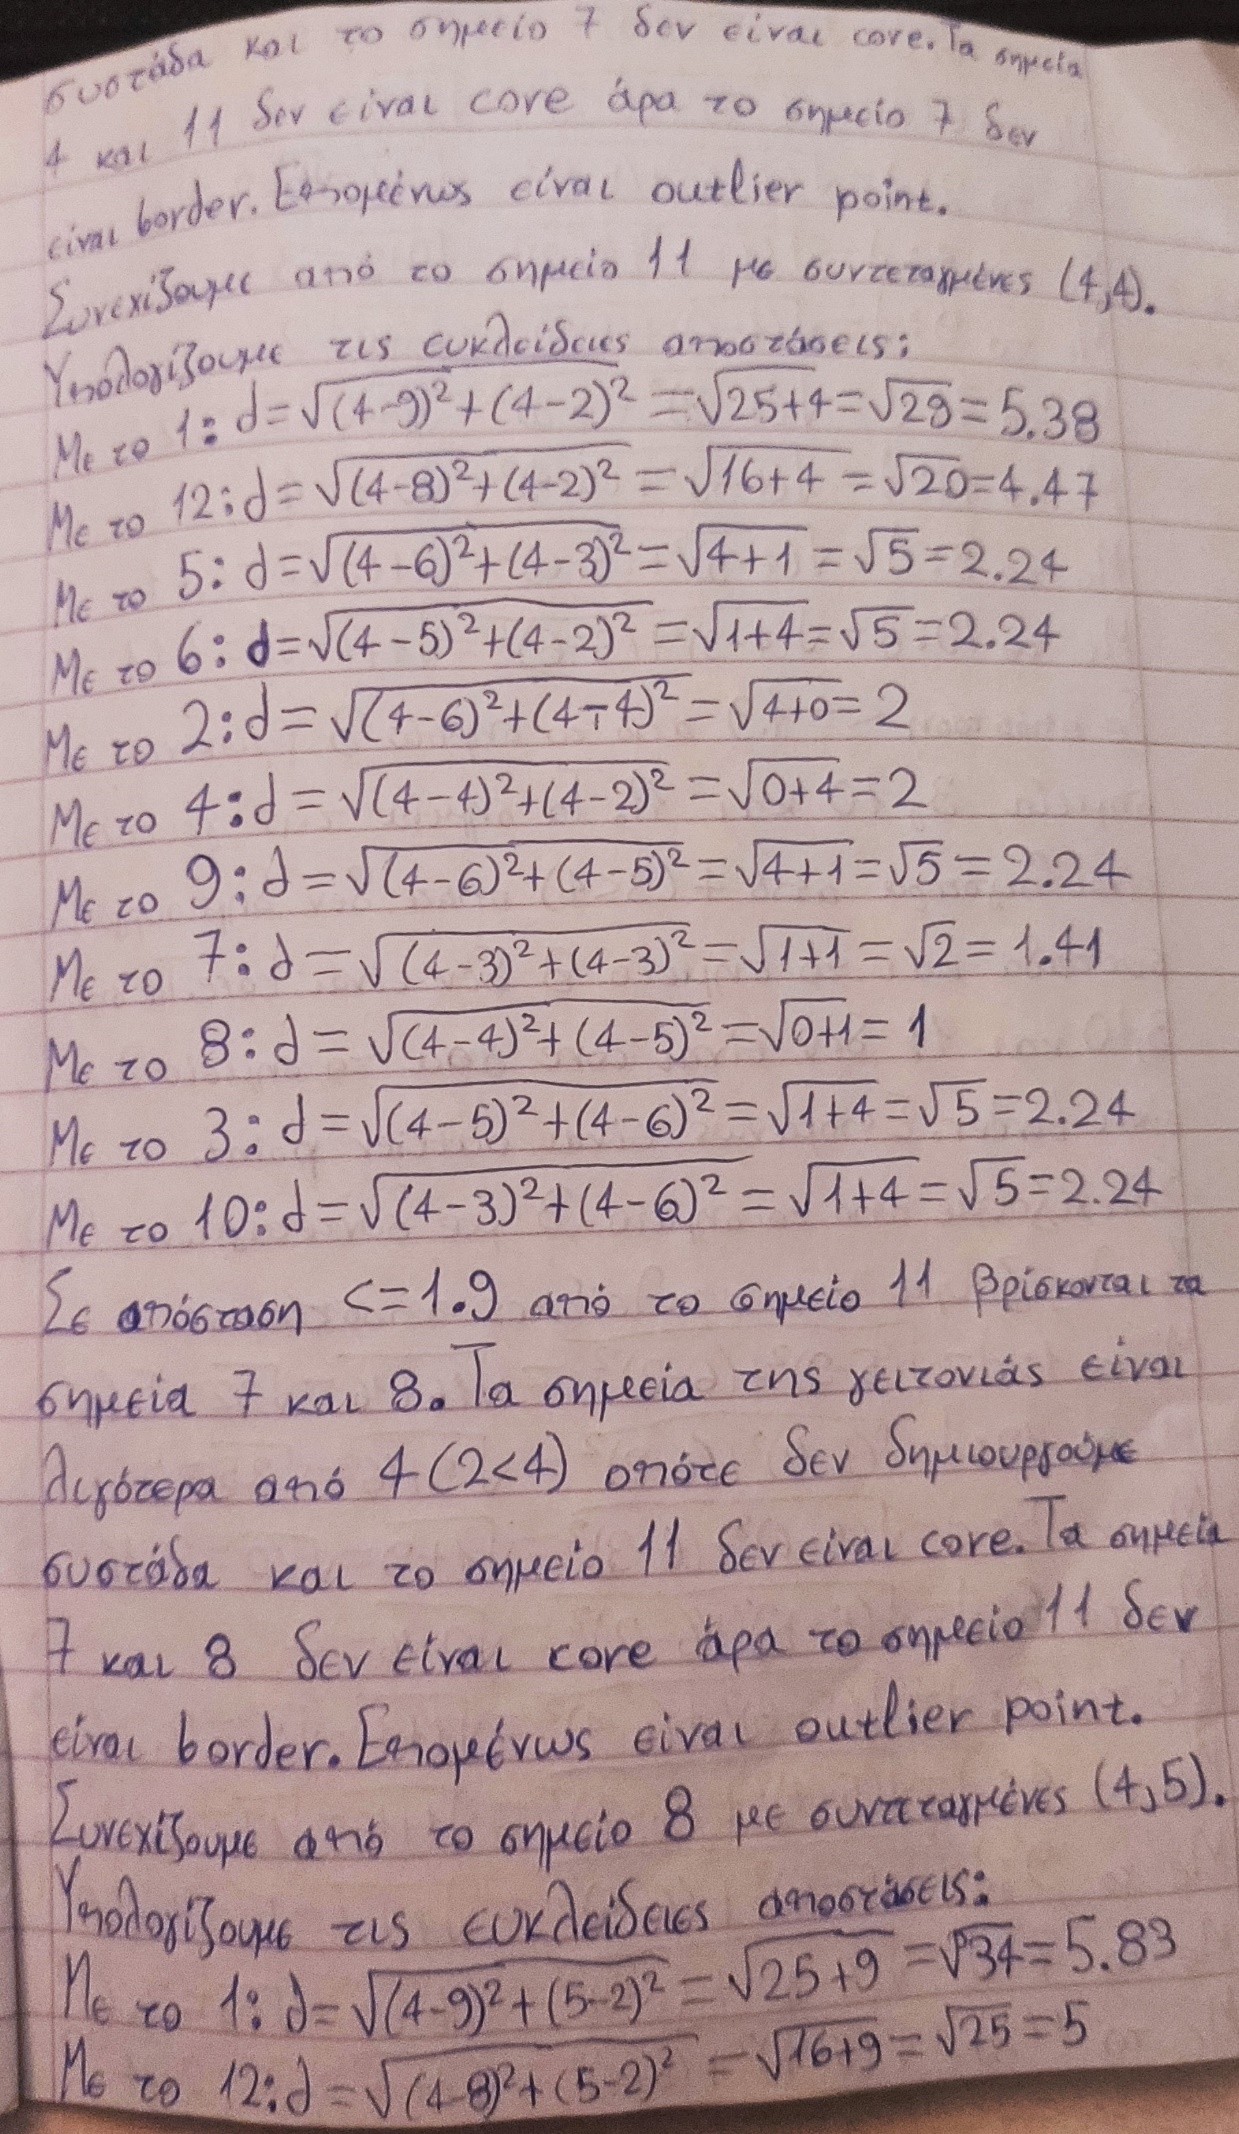 συστάδα και το σημείο 7 δεν είναι core. Τα σημεία
4 και 11 δεν είναι core άρα το σημείο 7 δεν
είναι border. Επομένως είναι outlier point.
Συνεχίζουμε από το σημείο 11 με συντεταγμένες (4,4).
Υπολογίζουμε τις ευκλείδειες αποστάσεις:
Με το 1: d=√(4-9)²+(4-2)² =√25+4=√29=5.38
Με το 12: d=√(4-8)²+(4-2)² =√16+4 =√20=4.47
Με το 5: d=√(4-6)²+(4-3)²=√4+1 =√5=2.24
Με το 6: d=√(4-5)²+(4-2)² =√1+4=√5=2.24
Με το 2: d=√(4-6)²+(4-4)²=√4+0=2
Με το 4: d=√(4-4)²+(4-2)²=√0+4=2
Με το 9: d=√(4-6)²+(4-5)²=√4+1=√5=2.24
Με το 7: d=√(4-3)²+(4-3)²=√1+1=√2=1.41
Με το 8: d=√(4-4)²+(4-5)²=√0+1=1
Με το 3: d=√(4-5)²+(4-6)²=√1+4=√5=2.24
Με το 10: d=√(4-3)²+(4-6)²=√1+4=√5=2.24
Σε απόσταση <=1.9 από το σημείο 11 βρίσκονται τα
σημεία 7 και 8. Τα σημεία της γειτονιάς είναι
λιγότερα από 4 (2<4) οπότε δεν δημιουργούμε
συστάδα και το σημείο 11 δεν είναι core. Τα σημεία
7 και 8 δεν είναι core άρα το σημείο 11 δεν
είναι border. Επομένως είναι outlier point.
Συνεχίζουμε από το σημείο 8 με συντεταγμένες (4,5).
Υπολογίζουμε τις ευκλείδειες αποστάσεις:
Με το 1: d=√(4-9)²+(5-2)² =√25+9 =√34=5.83
Με το 12: d=√(4-8)²+(5-2)² =√16+9=√25=5